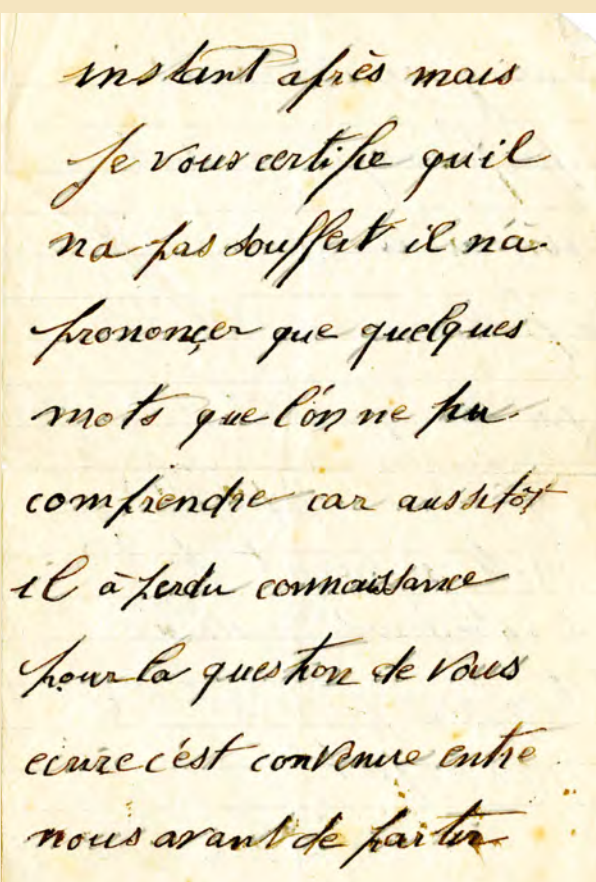 instant après mais
Je vous certifie qu'il
na pas souffert il n'a
prononçer que quelques
mots que l'ón ne pu
comprendre car aussitôt
il à perdu connaissance
pour la question de vous
ecrire c'ést convenue entre
nous avant de partir